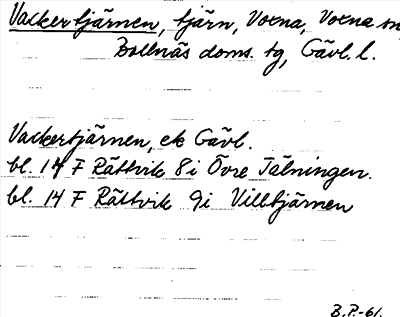 Vackertjärnen, tjärn, Voxna, Voxna sn,
Bollnäs doms. tg, Gävl. l.
Vackertjärnen, ek Gävl.
bl. 14 F Rättvik 8i Övre Tälningen.
bl. 14 F Rättvik 9i Villtjärnen
B.P.-61.